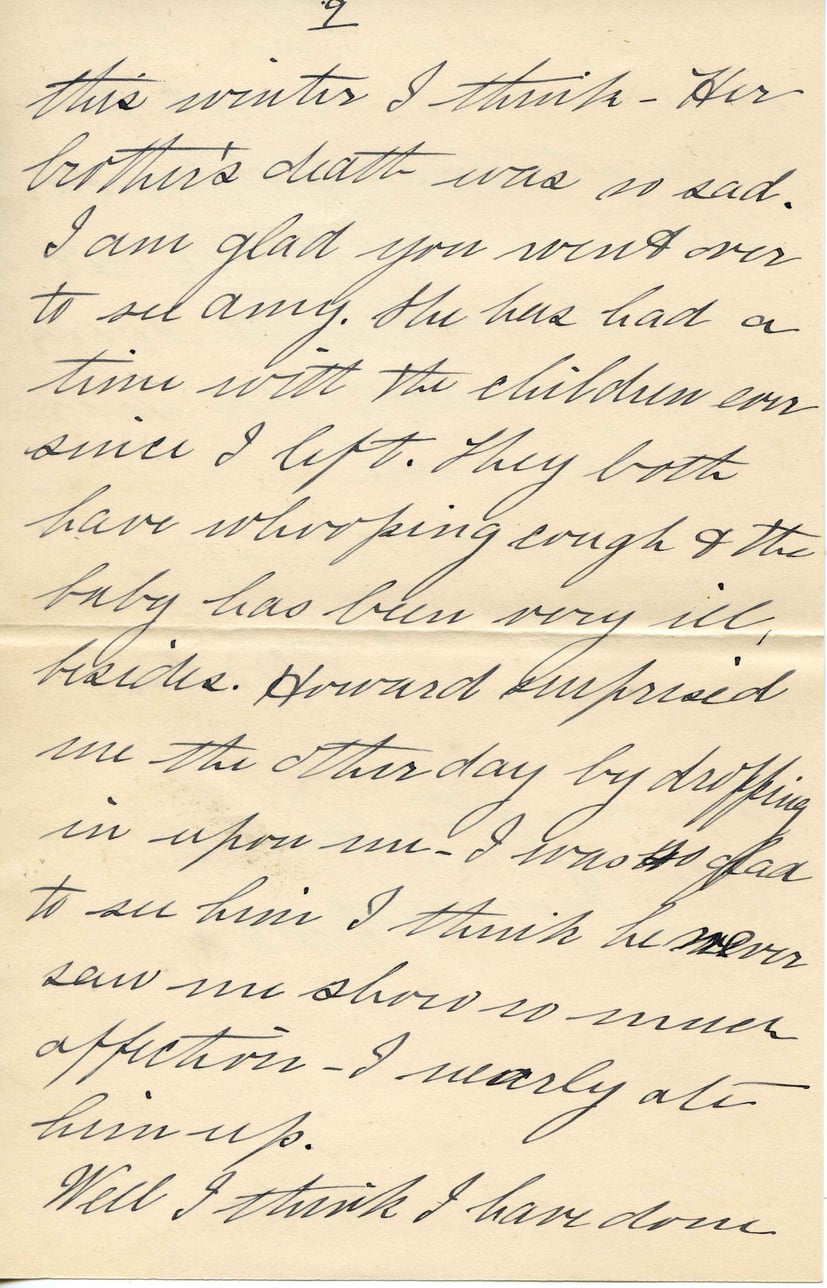 9
this winter I think - Her
brother's death was so sad.
I am glad you went over
to see Amy. She has had a
time with the children ever
since I left. They both
have whooping cough & the
baby has been very ill,
besides. Howard surprised
me the other day by dropping
in upon me - I was so glad
to see him I think he never
saw me show so much
affection - I nearly ate
him up.
Well I think I have done